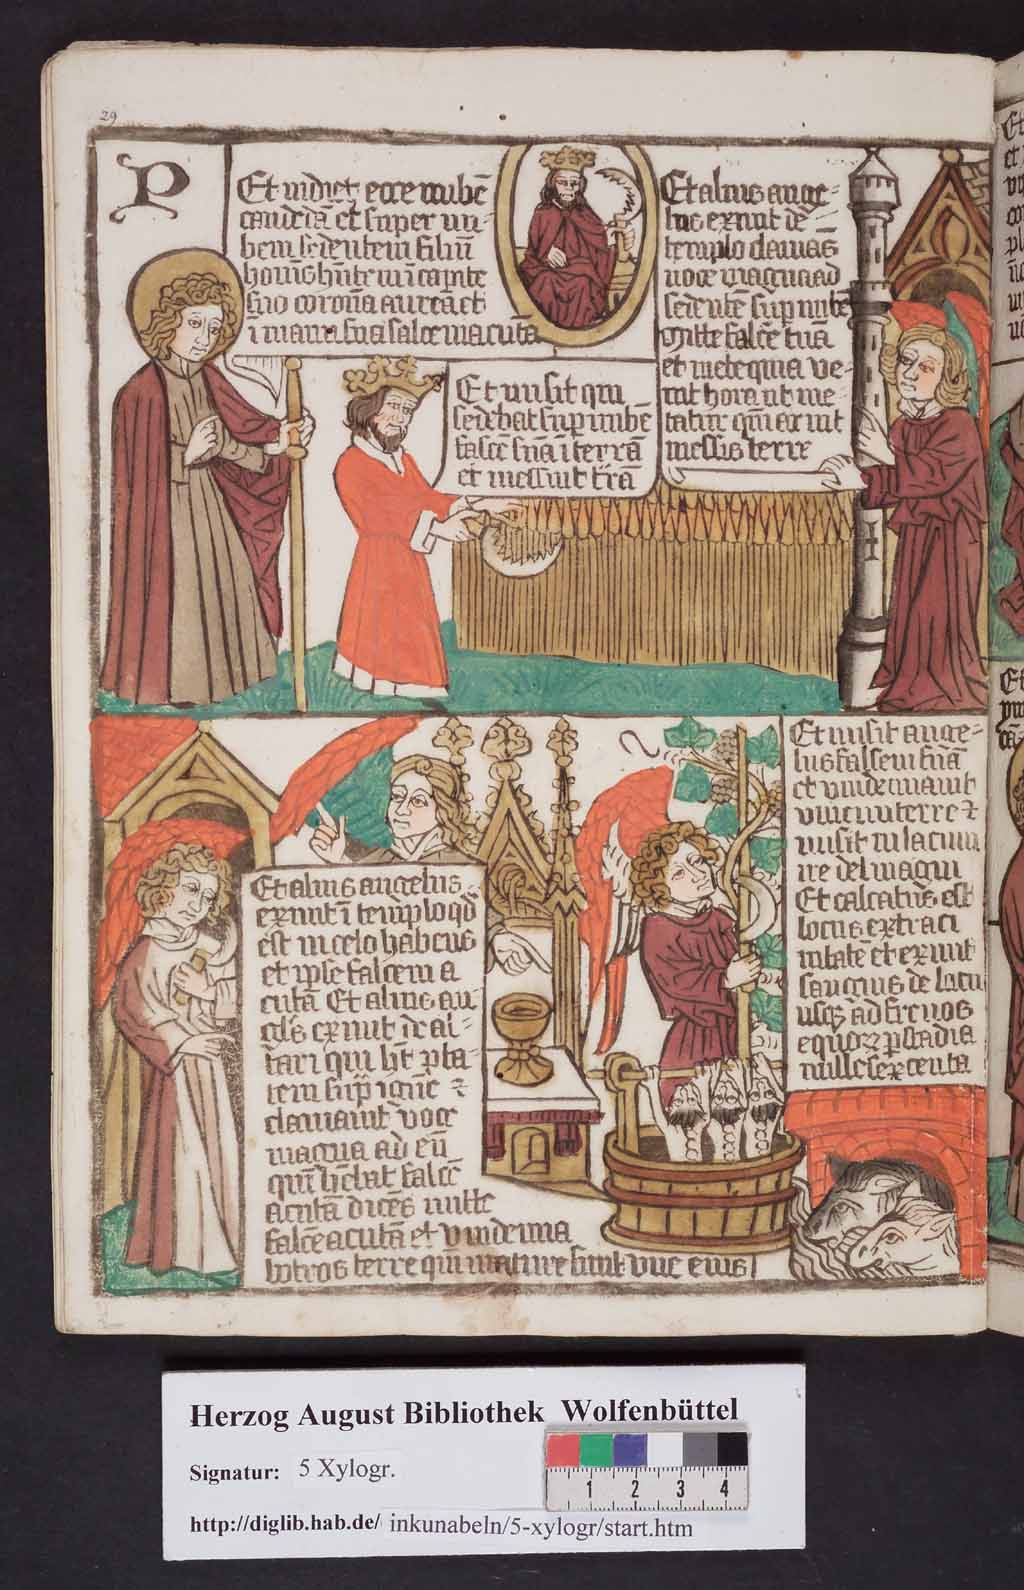 29
P
Et vidi et ecce nubē
candidā et super nu-
bem sedentem filiū
hoīs hñtem in capite
suo coronā aureā et
ī manu sua falcē acutā
Et alius ange-
lus exivit de
templo clamās
voce magna ad
sedentē sup nubē
Mitte falcē tuā
et mete quia ve-
nit hora ut me-
tatur qm̄ aruit
messis terre
Et misit qui
sedebat sup nubē
falcē suā ī terrā
et messuit trā
Et alius angelus
exivit ī templo qd̄
est in celo habens
et ipse falcem a
cutā Et alius an-
gls exivit de al-
tari qui ht̄ pta-
tem supͬ ignē ⁊
clamavit voce
magna ad eū
qui hēbat falcē
acutā dicēs mitte
falcē acutā et vindemia
botros terre qm̄ mature sunt vve eius
Et misit ange-
lus falcem suā
et vindemiavit
vineā terre ⁊
misit in lacum
ire dei magni
Et calcatus est
locus extra ci
vitatē et exivit
sanguis de lacu
usqʒ ad frenos
equoꝝ p stadia
mille sexcenta
Et
Herzog August Bibliothek Wolfenbüttel
Signatur: 5 Xylogr.
1 2 3 4
http://diglib.hab.de/ inkunabeln/5-xylogr/start.htm